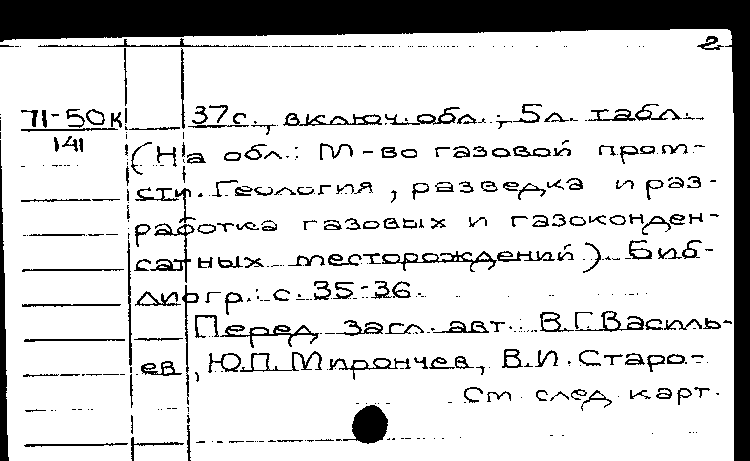 2
71-50К 37с., включ. обл.; 5л. табл.
141
(На обл.: М-во газовой пром-
сти. Геология, разведка и раз-
работка газовых и газоконден-
сатных месторождений). Биб-
лиогр.: с. 35-36.
Перед загл. авт.: В.Г. Василь-
ев, Ю.П. Мирончев, В.И. Старо-
См след. карт.